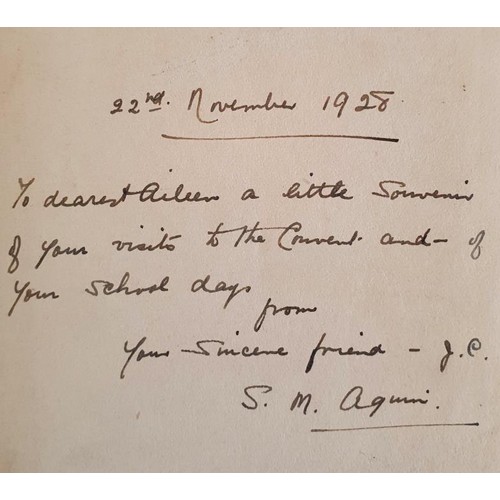 22nd. November 1928
To dearest Aileen a little Souvenir
of your visits to the Convent and - of
your School days
from
Your Sincere friend - J.C.
S. M. Aquin.